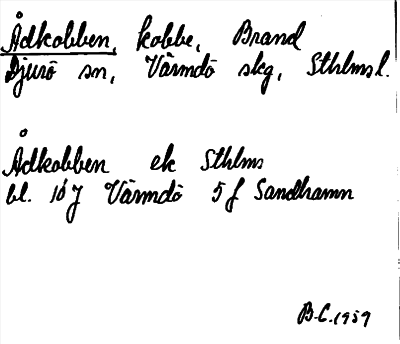 Ådkobben, kobbe, Brand
Djurö sn, Värmdö skg, Sthlms l.
Ådkobben ek Sthlms
bl. 10 J Värmdö 5 f Sandhamn
B.C. 1959